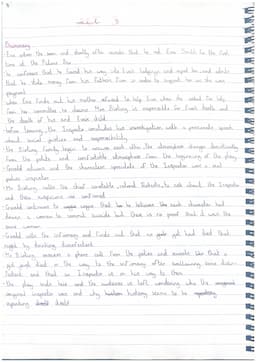 Act 3
Summary
- Eric enters the room and shortly after reveals that he met Eva Smith for the first
time at the Palace Bar
- he confesses that he forced his way into Eva's lodgings and raped her, and admits
that he stole money from his father's firm in order to support her as she was
pregnant
- when Eric finds out his mother refused to help Eva when she asked for help
from her committee he blames Mrs Birling is responsible for Eva's death and
the death of his and Eva's child
- before leaving, the Inspector concludes his investigation with a passionate speech
about social justice and responsibility
- the Birling family begin to accuse each other, the atmosphere changes drastically
from the polite and comfortable atmosphere from the beginning of the play
- Gerald returns and the characters speculate if the Inspector was a real
police inspector
- Mr Birling calls the chief constable, Colonel Roberts, to ask about the Inspector
and their suspicions are confirmed
- Gerald continues to argue that each character had
driven a woman to commit suicide but there is no proof that it was the
same woman
- Gerald calls the infirmary and finds out that no girl had died that
night by drinking disinfectant
- Mr Birling receives a phone call from the police and reveals that a
girl just died on the way to the infirmary after swallowing some disin-
fectant and that an Inspector is on his way to them
- the play ends here and the audience is left wondering who the
original inspector was and why history seems to be
repeating